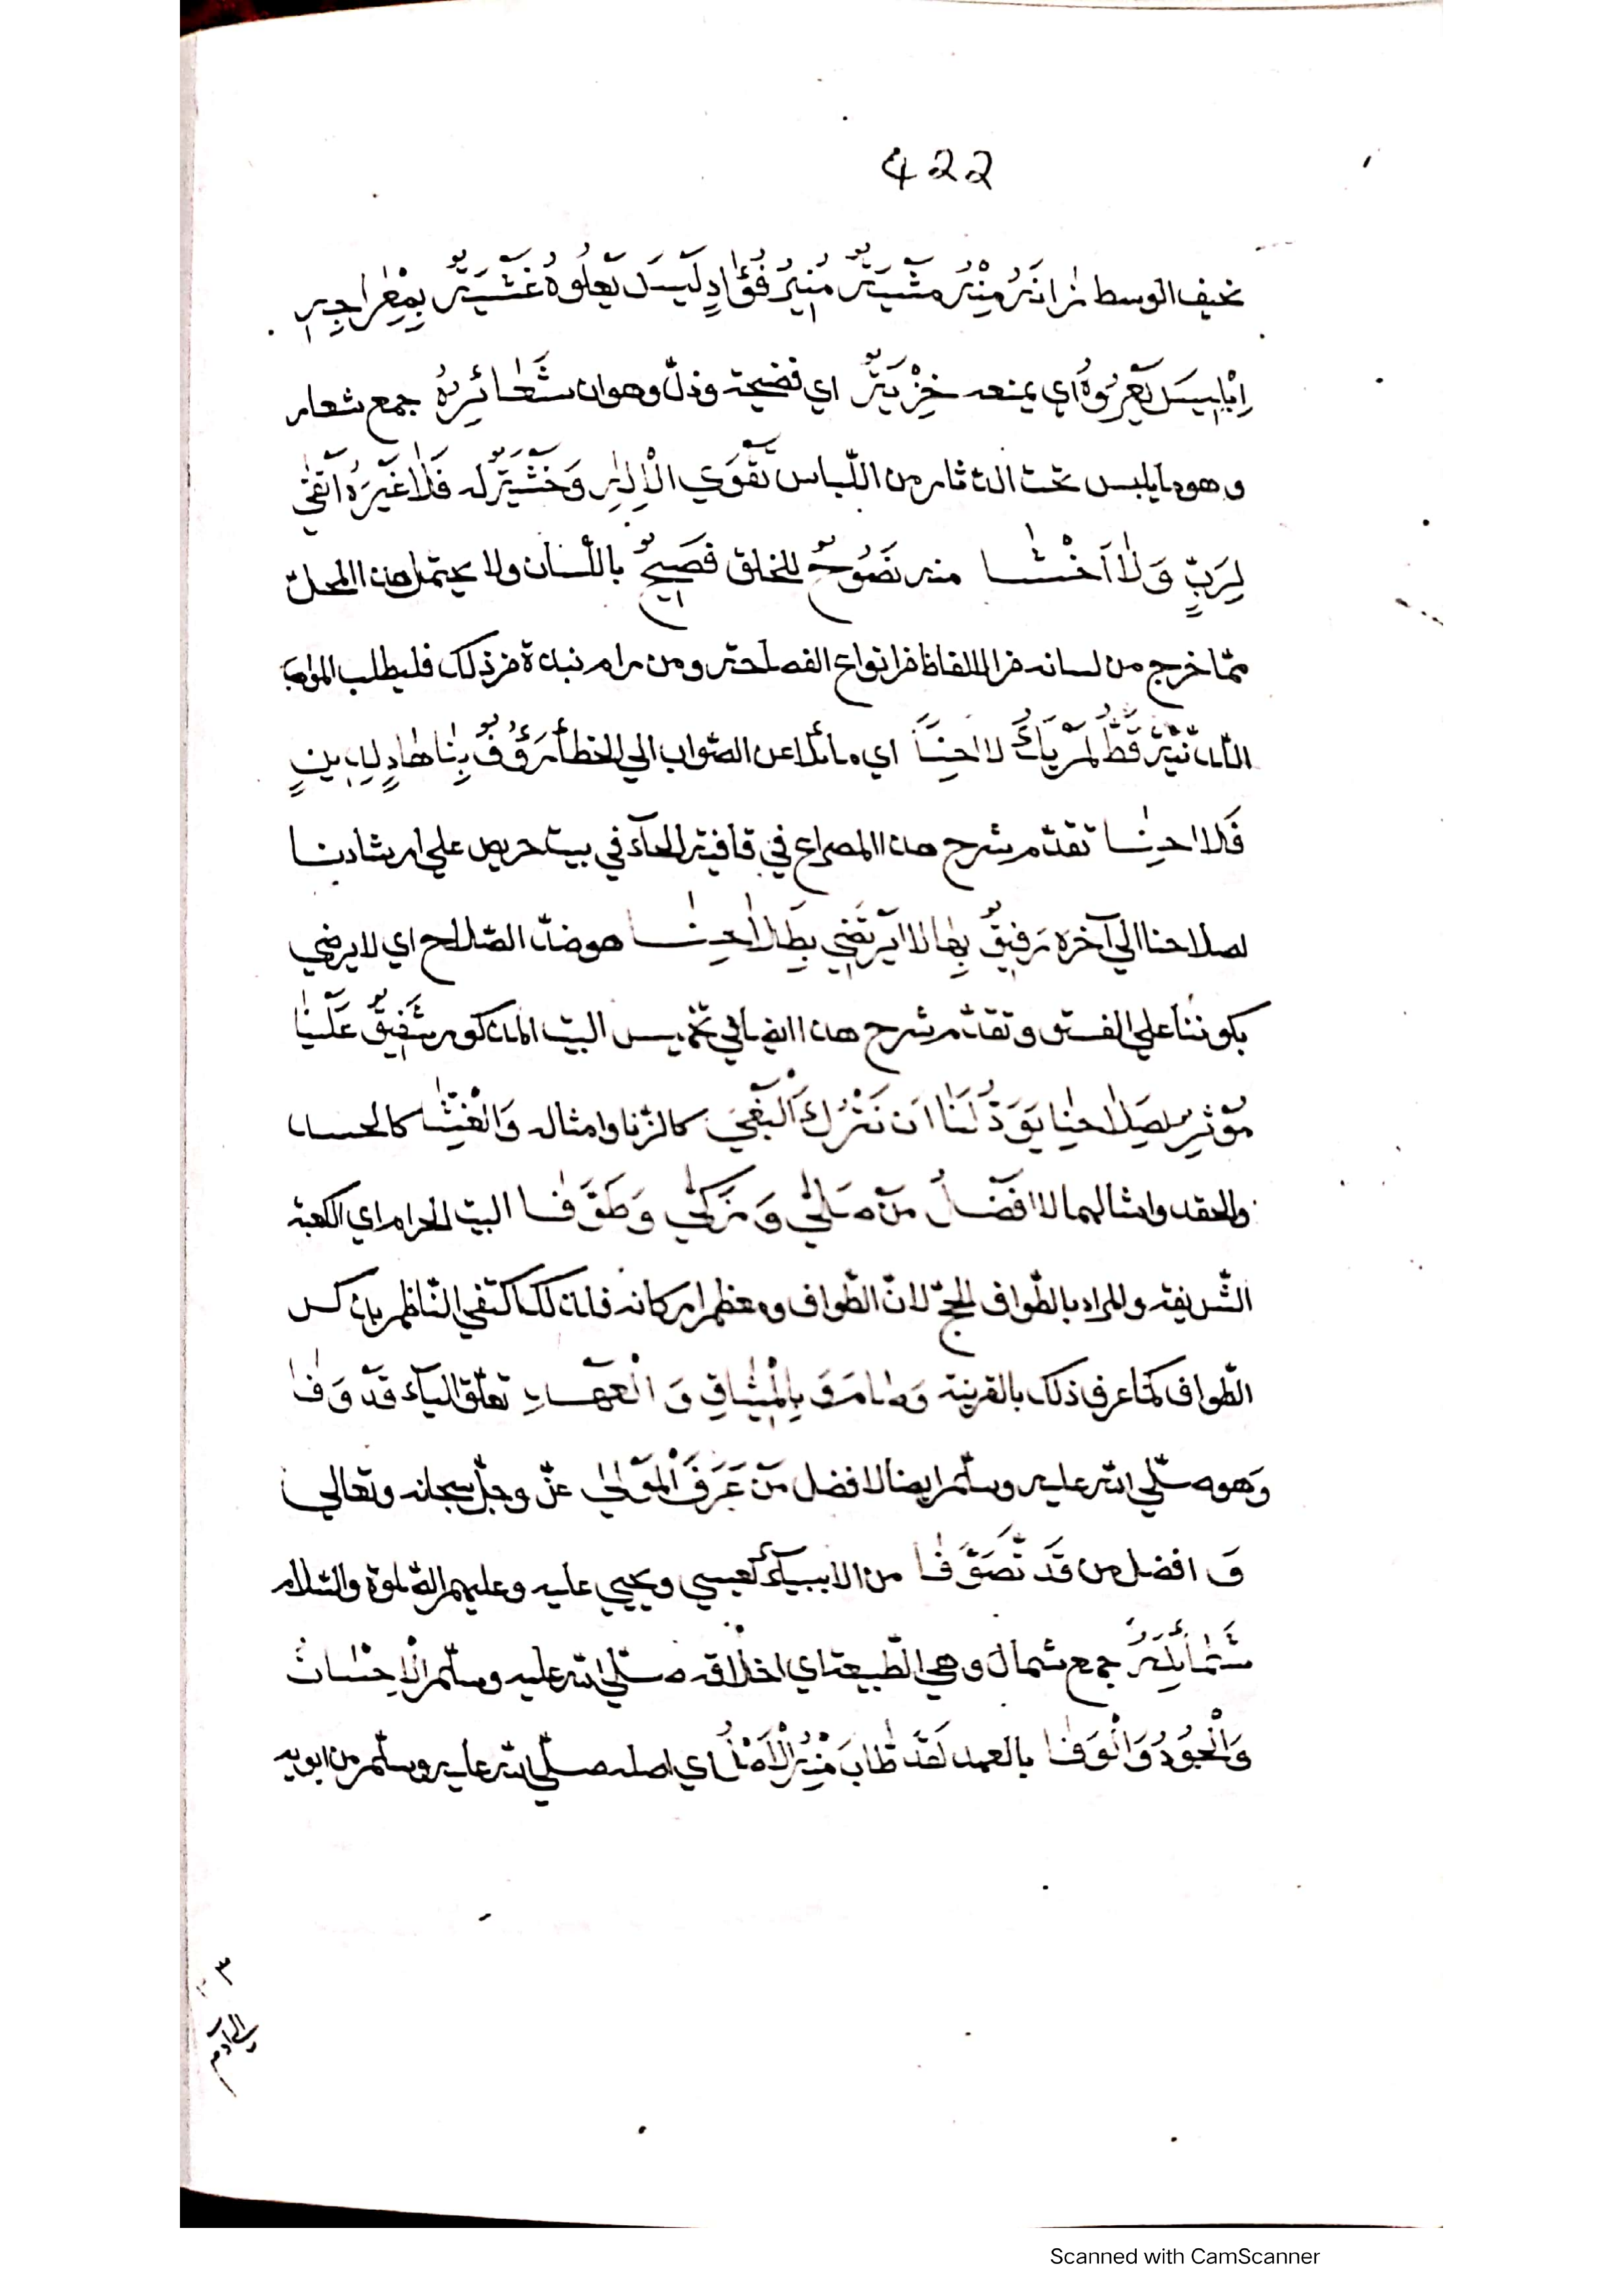 422
نحيف الوسط زانَهُ مِنْهُ مَشْيَةٌ مُنِيرُ فُؤَادٍ لَيْسَ يَعْلُوهُ غَشْيَةٌ بِمِعْرَاجِهِ
اِبْلِيسَ يَعْرُوهُ اي يمنعه خِزْيَةٌ اي فضيحة وذلّ وهوان شَعَائِرُهُ جمع شعار
وهو ما يلبس تحت الدثار من اللّباس تَقْوَي الْاِلٰهِ وَخَشْيَةٌ له فَلَا غَيْرَهُ اَتْقٰي
لِرَبٍّ وَلَا اَخْشَا منه نَصُوحٌ للخلق فَصِيحٌ باللّسان ولا يحتمل هذا المحلّ
ممّا خرج من لسانه من الالفاظ من انواع الفصاحة ومن رام نبذة من ذلك فليطلب المواهب
اللدنية قَطُّ لَمْ يَكُ لاحِنًا اي مائلا عن الصّواب الي الخطأ رَؤُفٌ بِنَا هَادٍ لِدِينٍ
فَلَاحِنَا تقدّم شرح هذا المصراع في قافية الحآء في بيت حريص علي ارشادنا
لصلاحنا الي آخره رَفِيقٌ بِهَا لا يَرْتَضِي بِطَلَاحِنَا هو ضدّ الصّلاح اي لا يرضي
بكوننا علي الفسق وتقدّم شرح هذا ايضا في تخميس البيت المذكور شَفِيقٌ عَلَيْنَا
مُؤْثِرٌ لِصَلَاحِنَا يَوَدُّ لَنَا اَنْ نَتْرُكَ الْبَغْيَ كالزّنا وامثاله وَالْغِشَّا كالحسد
والحقد وامثالهما الا افْضَلُ مَنْ صَلّٰي وَزَكّٰي وَطَوَّفَا البيت الحرام اي الكعبة
الشّريفة والمراد بالطّواف الحجّ لانّ الطّواف معظم اركانه فلذلك اكتفي النّاظم بذكر
الطّواف كما عرف ذلك بالقرينة وَ بِالْمِيثَاقِ وَالْعَهْدِ تعلّق البآء قَدْ وَفَا
وَهو صلّي الله عليه وسلّم ايضا الافضل مَنْ عَرَفَ الْمَوْلٰي عزّ وجلّ سبحانه وتعالي
وَ افضل من قَدْ تَصَوَّفَا من الانبيآء كعيسي ويحيي عليه وعليهم الصّلوة والسّلام
شَمَائِلُهُ جمع شمال وهي الطّبيعة اي اخلاقه صلّي الله عليه وسلّم الْاِحْسَانُ
وَالْجُودُ وَالْوَفَا بالعهد لَقَدْ طَابَ مِنْهُ الْاَصْلُ اي اصله صلّي الله عليه وسلّم من ابويه
Scanned with CamScanner